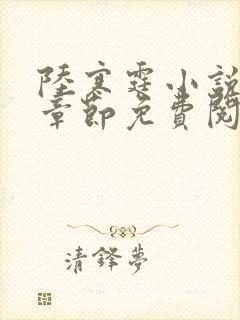 陸寒霆小說
章節免費閱
清鋒夢